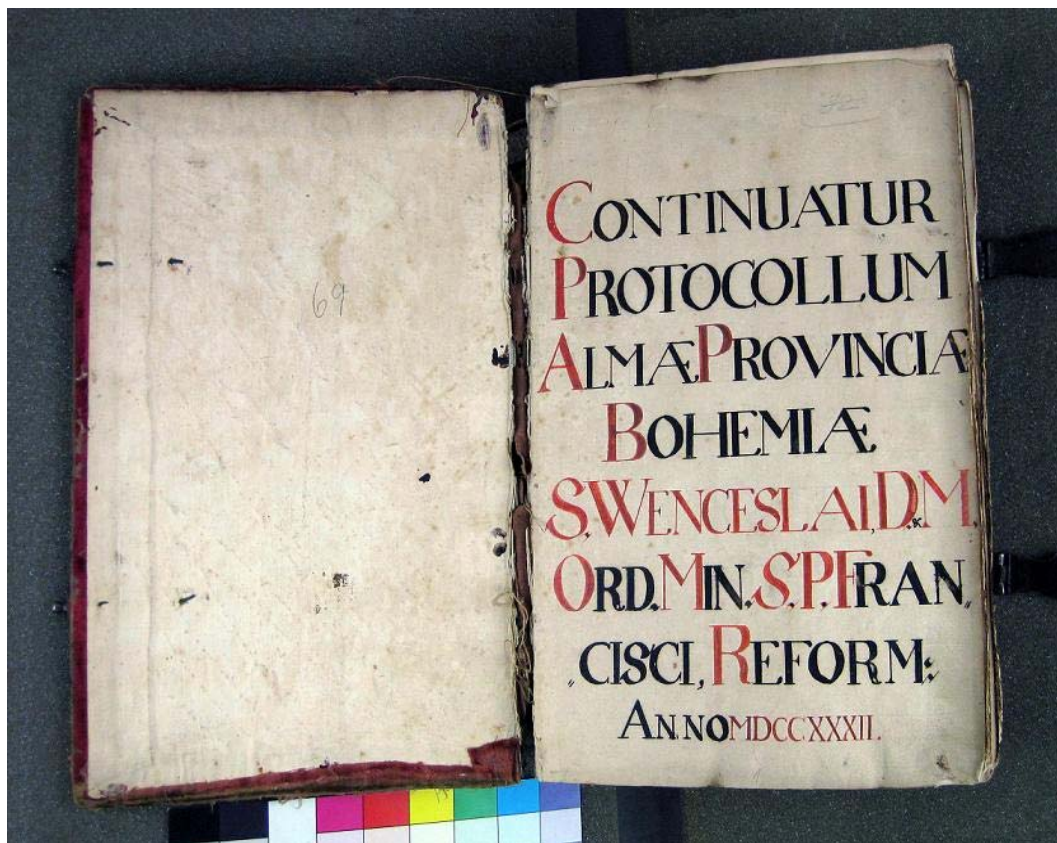 69
CONTINUATUR
PROTOCOLLUM
ALMÆ PROVINCIÆ
BOHEMIÆ
S. WENCESLAI, D. & M.
ORD. MIN. S. P. FRAN„
„CISCI, REFORM:
ANNO MDCCXXXII.